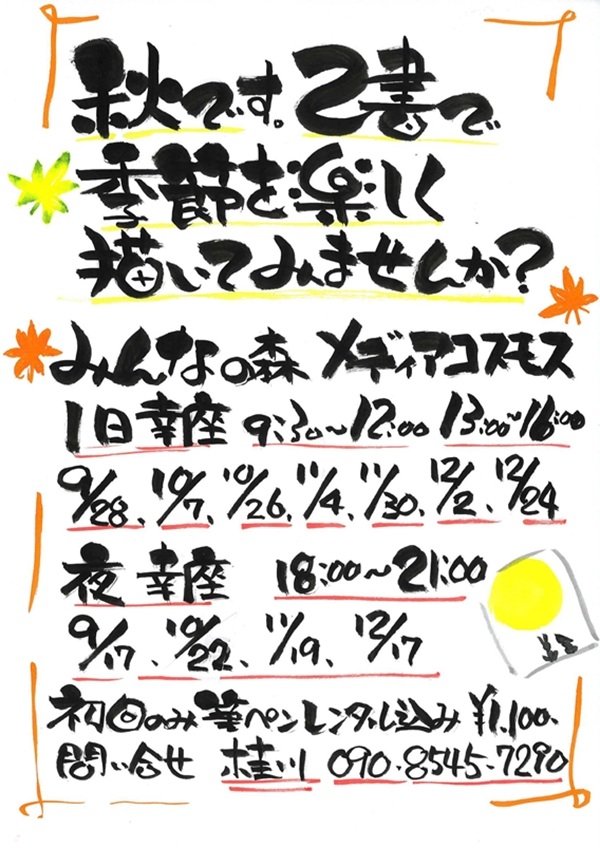 秋です。己書で
季節を楽しく
描いてみませんか?
みんなの森 メディアコスモス
1日幸座 9:30~12:00 13:00~16:00
9/28、10/7、10/26、11/4、11/30、12/2、12/24
夜 幸座 18:00~21:00
9/17、10/22、11/19、12/17
初回のみ筆ペンレンタル込み ¥1,100.
問い合せ 桂川 090-8545-7290